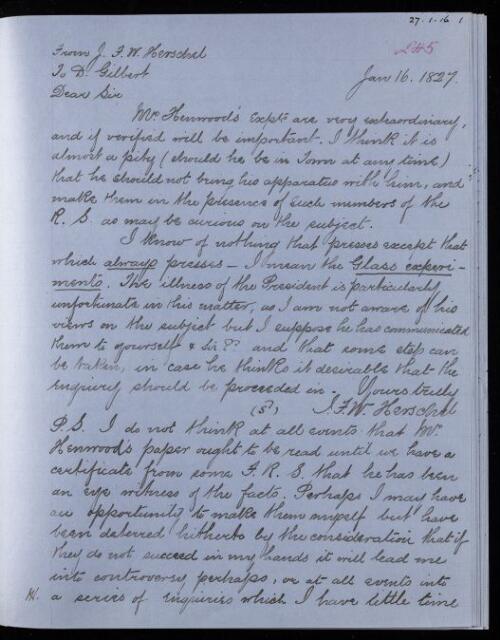 27.1.16 1
From J. F. W. Herschel
To D. Gilbert
Jan 16. 1827.
Dear Sir
Mr. Henwood's Expts. are very extraordinary,
and if verified will be important. I think it is
almost a pity (should he be in Town at any time)
that he should not bring his apparatus with him, and
make them in the presence of such members of the
R. S. as may be curious on the subject.
I know of nothing that presses except that
which always presses – I mean the Glass experi-
ments. The illness of the President is particularly
unfortunate in this matter, as I am not aware of his
views on the subject but I suppose he has communicated
them to yourself & and that some step can
be taken, in case he thinks it desirable that the
enquiry should be proceeded in. Yours truly
(Sd) J. F. W. Herschel
P.S. I do not think at all events that Mr.
Henwood's paper ought to be read until we have a
certificate from some F. R. S. that he has been
an eye witness of the facts. Perhaps I may have
an opportunity to make them myself but have
been deterred hitherto by the consideration that if
they do not succeed in my hands it will lead me
into controversy perhaps, or at all events into
a series of enquiries which I have little time